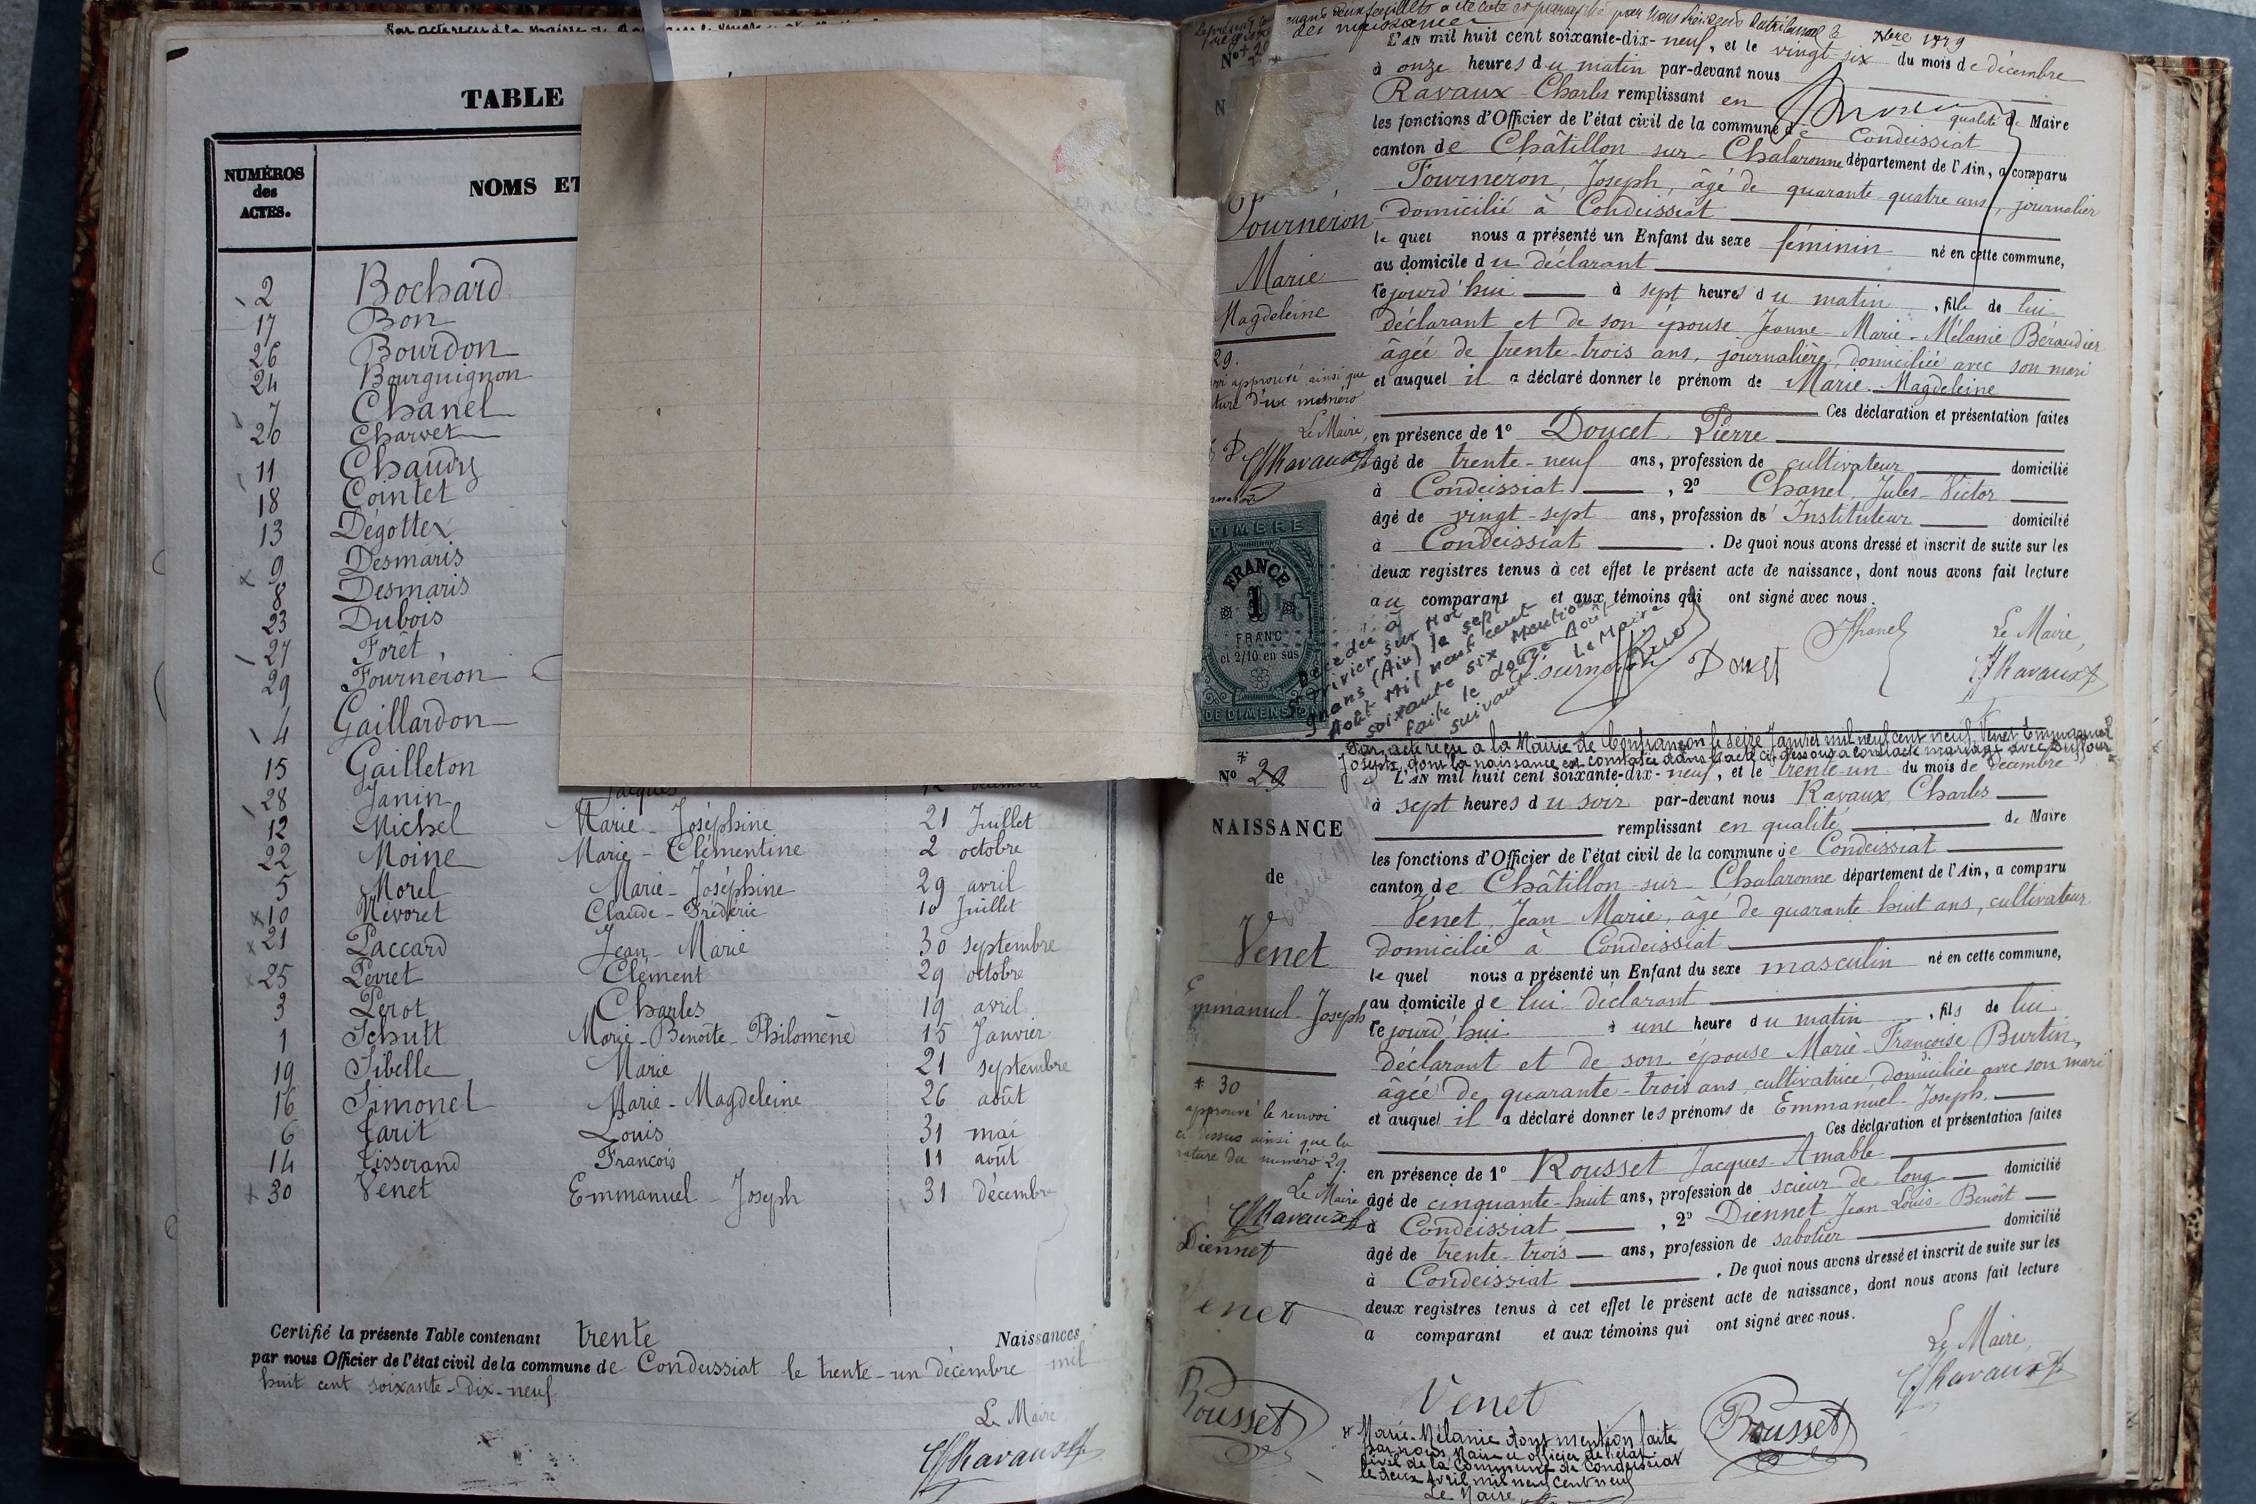 TABLE
NUMÉROS
des
ACTES.
NOMS ET
2 Bochard
17 Bon
26 Bourdon
24 Bourguignon
7 Chanel
20 Charvet
11 Chaudy
18 Cointet
13 Dégottex
9 Desmaris
8 Desmaris
23 Dubois
27 Forêt
29 Fournéron
4 Gaillardon
15 Gailleton
28 Janin Jacques
12 Michel Marie-Joséphine 21 Juillet
22 Moine Marie-Clémentine 2 octobre
5 Morel Marie-Joséphine 29 avril
10 Névoret Claude-Frédéric 10 Juillet
21 Paccard Jean-Marie 30 septembre
25 Perret Clément 29 octobre
3 Perot Charles 19 avril
1 Schutt Marie-Benoîte-Philomène 15 Janvier
19 Sibelle Marie 21 septembre
16 Simonel Marie-Magdeleine 26 août
6 Tarit Louis 31 mai
14 Tisserand François 11 août
30 Venet Emmanuel-Joseph 31 décembre
Certifié la présente Table contenant trente Naissances
par nous Officier de l'état civil de la commune de Condeissiat le trente-un décembre mil
huit cent soixante-dix-neuf
Le Maire
ChRavaux
L'AN mil huit cent soixante-dix-neuf, et le vingt-six du mois de décembre
à onze heures du matin par-devant nous
Ravaux Charles remplissant en qualité de Maire
les fonctions d'Officier de l'état civil de la commune de Condeissiat
canton de Châtillon-sur-Chalaronne département de l'Ain, a comparu
Fournéron, Joseph, âgé de quarante quatre ans, journalier
domicilié à Condeissiat
lequel nous a présenté un Enfant du sexe féminin né en cette commune,
au domicile du déclarant
cejourd'hui à sept heures du matin, fille de lui
déclarant et de son épouse Jeanne-Marie-Mélanie Béraudier
âgée de trente-trois ans, journalière, domiciliée avec son mari
et auquel il a déclaré donner le prénom de Marie Magdeleine
Ces déclaration et présentation faites
en présence de 1º Doucet, Pierre
âgé de trente-neuf ans, profession de cultivateur domicilié
à Condeissiat, 2º Chanel, Jules-Victor
âgé de vingt-sept ans, profession de Instituteur domicilié
à Condeissiat. De quoi nous avons dressé et inscrit de suite sur les
deux registres tenus à cet effet le présent acte de naissance, dont nous avons fait lecture
au comparant et aux témoins qui ont signé avec nous.
Fournéron
Marie
Magdeleine
29.
approuvé ainsi que
Le Maire,
ChRavaux
TIMBRE
FRANCE
1
FRANC
et 2/10 en sus
DE DIMENSION
Décédée à
(Ain) le sept
Août mil neuf cent
soixante six Mention
faite le douze Août
suivant Le Maire
Chanel
Le Maire,
ChRavaux
Par acte reçu à la Mairie de Confrançon le seize Janvier mil neuf cent neuf, Venet Emmanuel
Joseph, dont la naissance est constatée dans l'acte ci-dessous a contracté mariage avec Buffour
Nº 29
L'AN mil huit cent soixante-dix-neuf, et le trente-un du mois de décembre
à sept heures du soir par-devant nous Ravaux, Charles
remplissant en qualité de Maire
les fonctions d'Officier de l'état civil de la commune de Condeissiat
canton de Châtillon-sur-Chalaronne département de l'Ain, a comparu
Venet, Jean-Marie, âgé de quarante-huit ans, cultivateur
domicilié à Condeissiat
lequel nous a présenté un Enfant du sexe masculin né en cette commune,
au domicile de lui déclarant
cejourd'hui à une heure du matin, fils de lui
déclarant et de son épouse Marie-Françoise Burtin,
âgée de quarante-trois ans, cultivatrice, domiciliée avec son mari
et auquel il a déclaré donner les prénoms de Emmanuel-Joseph.
Ces déclaration et présentation faites
en présence de 1º Rousset Jacques-Amable
âgé de cinquante-huit ans, profession de scieur de long domicilié
à Condeissiat, 2º Diennet Jean-Louis-Benoît
âgé de trente-trois ans, profession de sabotier domicilié
à Condeissiat. De quoi nous avons dressé et inscrit de suite sur les
deux registres tenus à cet effet le présent acte de naissance, dont nous avons fait lecture
a comparant et aux témoins qui ont signé avec nous.
NAISSANCE
de
Venet
Emmanuel-Joseph
* 30
approuvé le renvoi
ci dessus ainsi que la
rature du numéro 29.
Le Maire
ChRavaux
Diennet
Venet
Rousset
Le Maire,
ChRavaux
Venet
Rousset
Marie-Mélanie dont mention faite
par nous Maire et officier de l'état
civil de la Commune de Condeissiat
le deux Avril mil neuf cent neuf
Le Maire